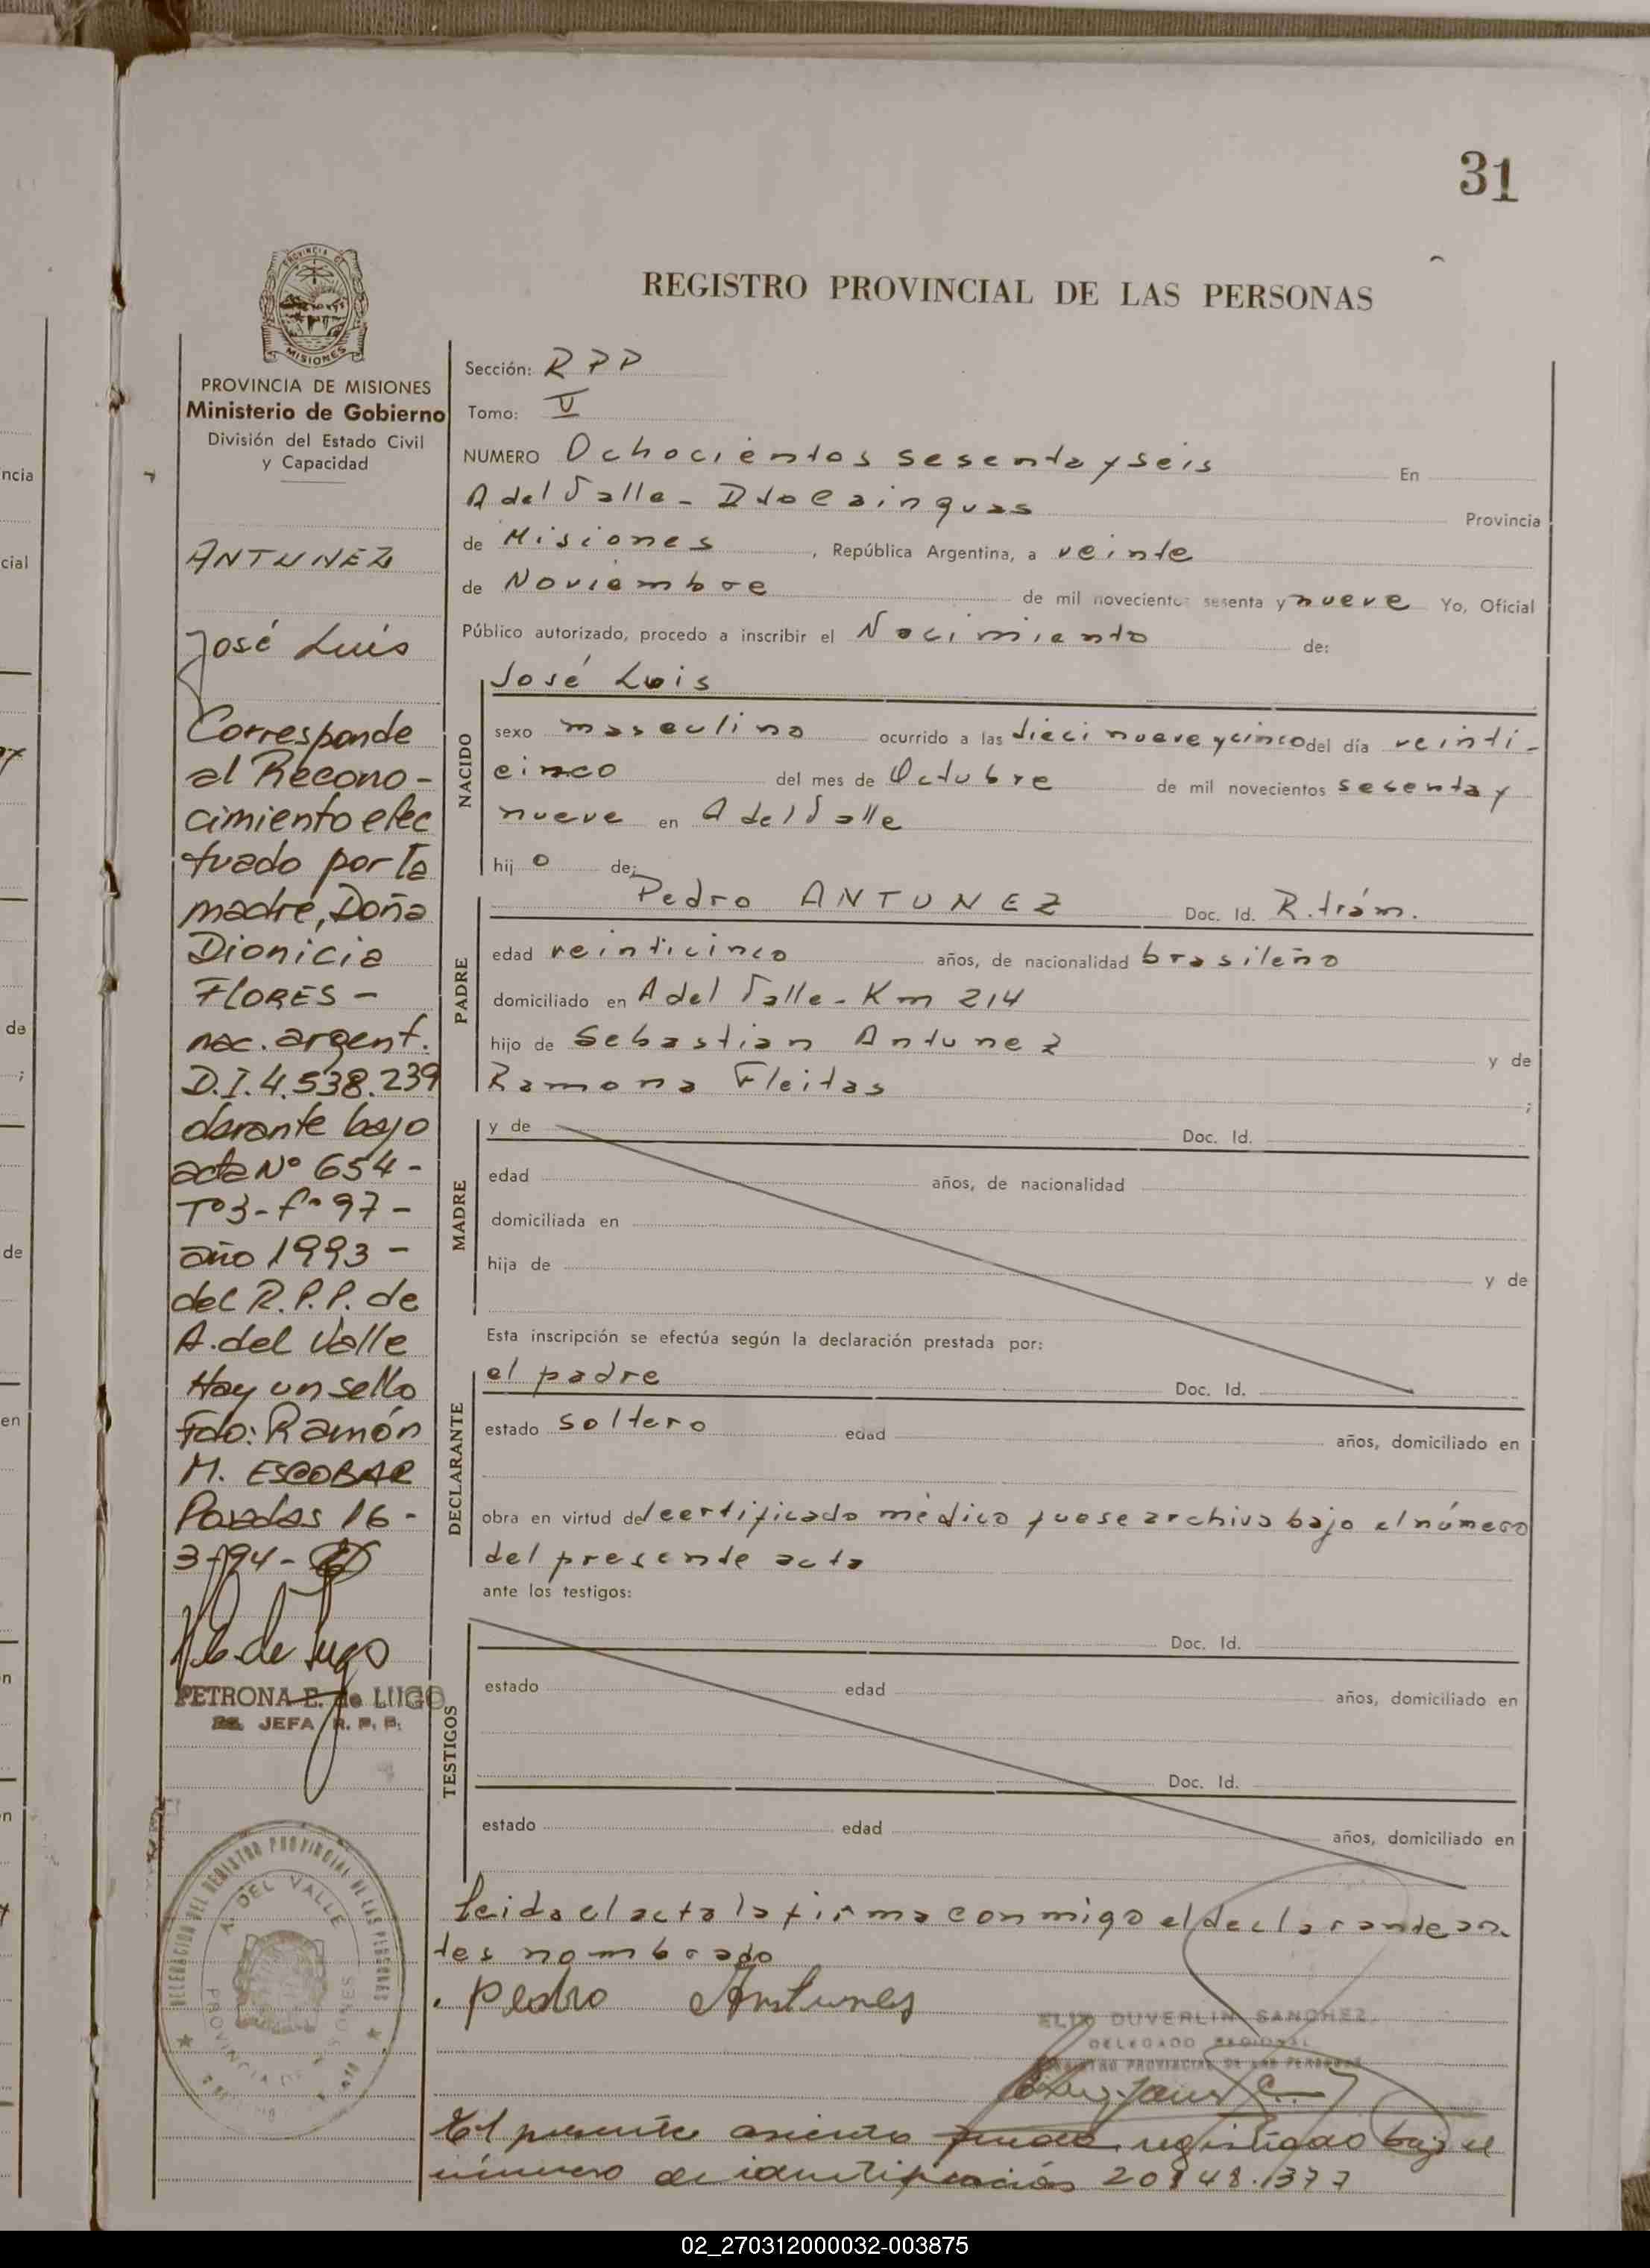 31
REGISTRO PROVINCIAL DE LAS PERSONAS
PROVINCIA DE MISIONES
Ministerio de Gobierno
División del Estado Civil
y Capacidad
ANTUNEZ
José Luis
Corresponde
al Recono-
cimiento efec
tuado por la
madre, Doña
Dionicia
FLORES -
nac. argent.
D.I. 4.538.239
acta Nº 654 -
Tº 3 - fº 97 -
año 1993 -
del R.P.P. de
A. del Valle
Hay un sello
Fdo: Ramón
M. ESCOBAR
Posadas 16 -
3-94 -
PETRONA E. de LUGO
JEFA R. P. P.
DELEGACION DEL REGISTRO PROVINCIAL DE LAS PERSONAS
A. DEL VALLE
PROVINCIA DE MISIONES
Sección: RPP
Tomo: V
NUMERO Ochocientos sesenta y seis En
A del Valle - Dto Cainguas Provincia
de Misiones, República Argentina, a veinte
de Noviembre de mil novecientos sesenta y nueve Yo, Oficial
Público autorizado, procedo a inscribir el Nacimiento de:
José Luis
NACIDO
sexo masculino ocurrido a las dieci nueve y cinco del día veinti-
cinco del mes de Octubre de mil novecientos sesenta y
nueve en A del Valle
hij o de:
PADRE
Pedro ANTUNEZ Doc. Id. R. trám.
edad veinticinco años, de nacionalidad brasileño
domiciliado en A del Valle - Km 214
hijo de Sebastian Antunez y de
Ramona Fleitas ;
MADRE
y de Doc. Id.
edad años, de nacionalidad
domiciliada en
hija de y de
Esta inscripción se efectúa según la declaración prestada por:
DECLARANTE
el padre Doc. Id.
estado soltero edad años, domiciliado en
obra en virtud del certificado médico que se archiva bajo el número
del presente acta
ante los testigos:
TESTIGOS
Doc. Id.
estado edad años, domiciliado en
Doc. Id.
estado edad años, domiciliado en
Leida el acta la firma conmigo el declarante an
tes nombrado
Pedro Antunes
DUVERLIN SANCHEZ
DELEGADO REGIONAL
REGISTRO PROVINCIAL DE LAS PERSONAS
El presente asiento registrado bajo el
número de identificación 20848.377
02_270312000032-003875